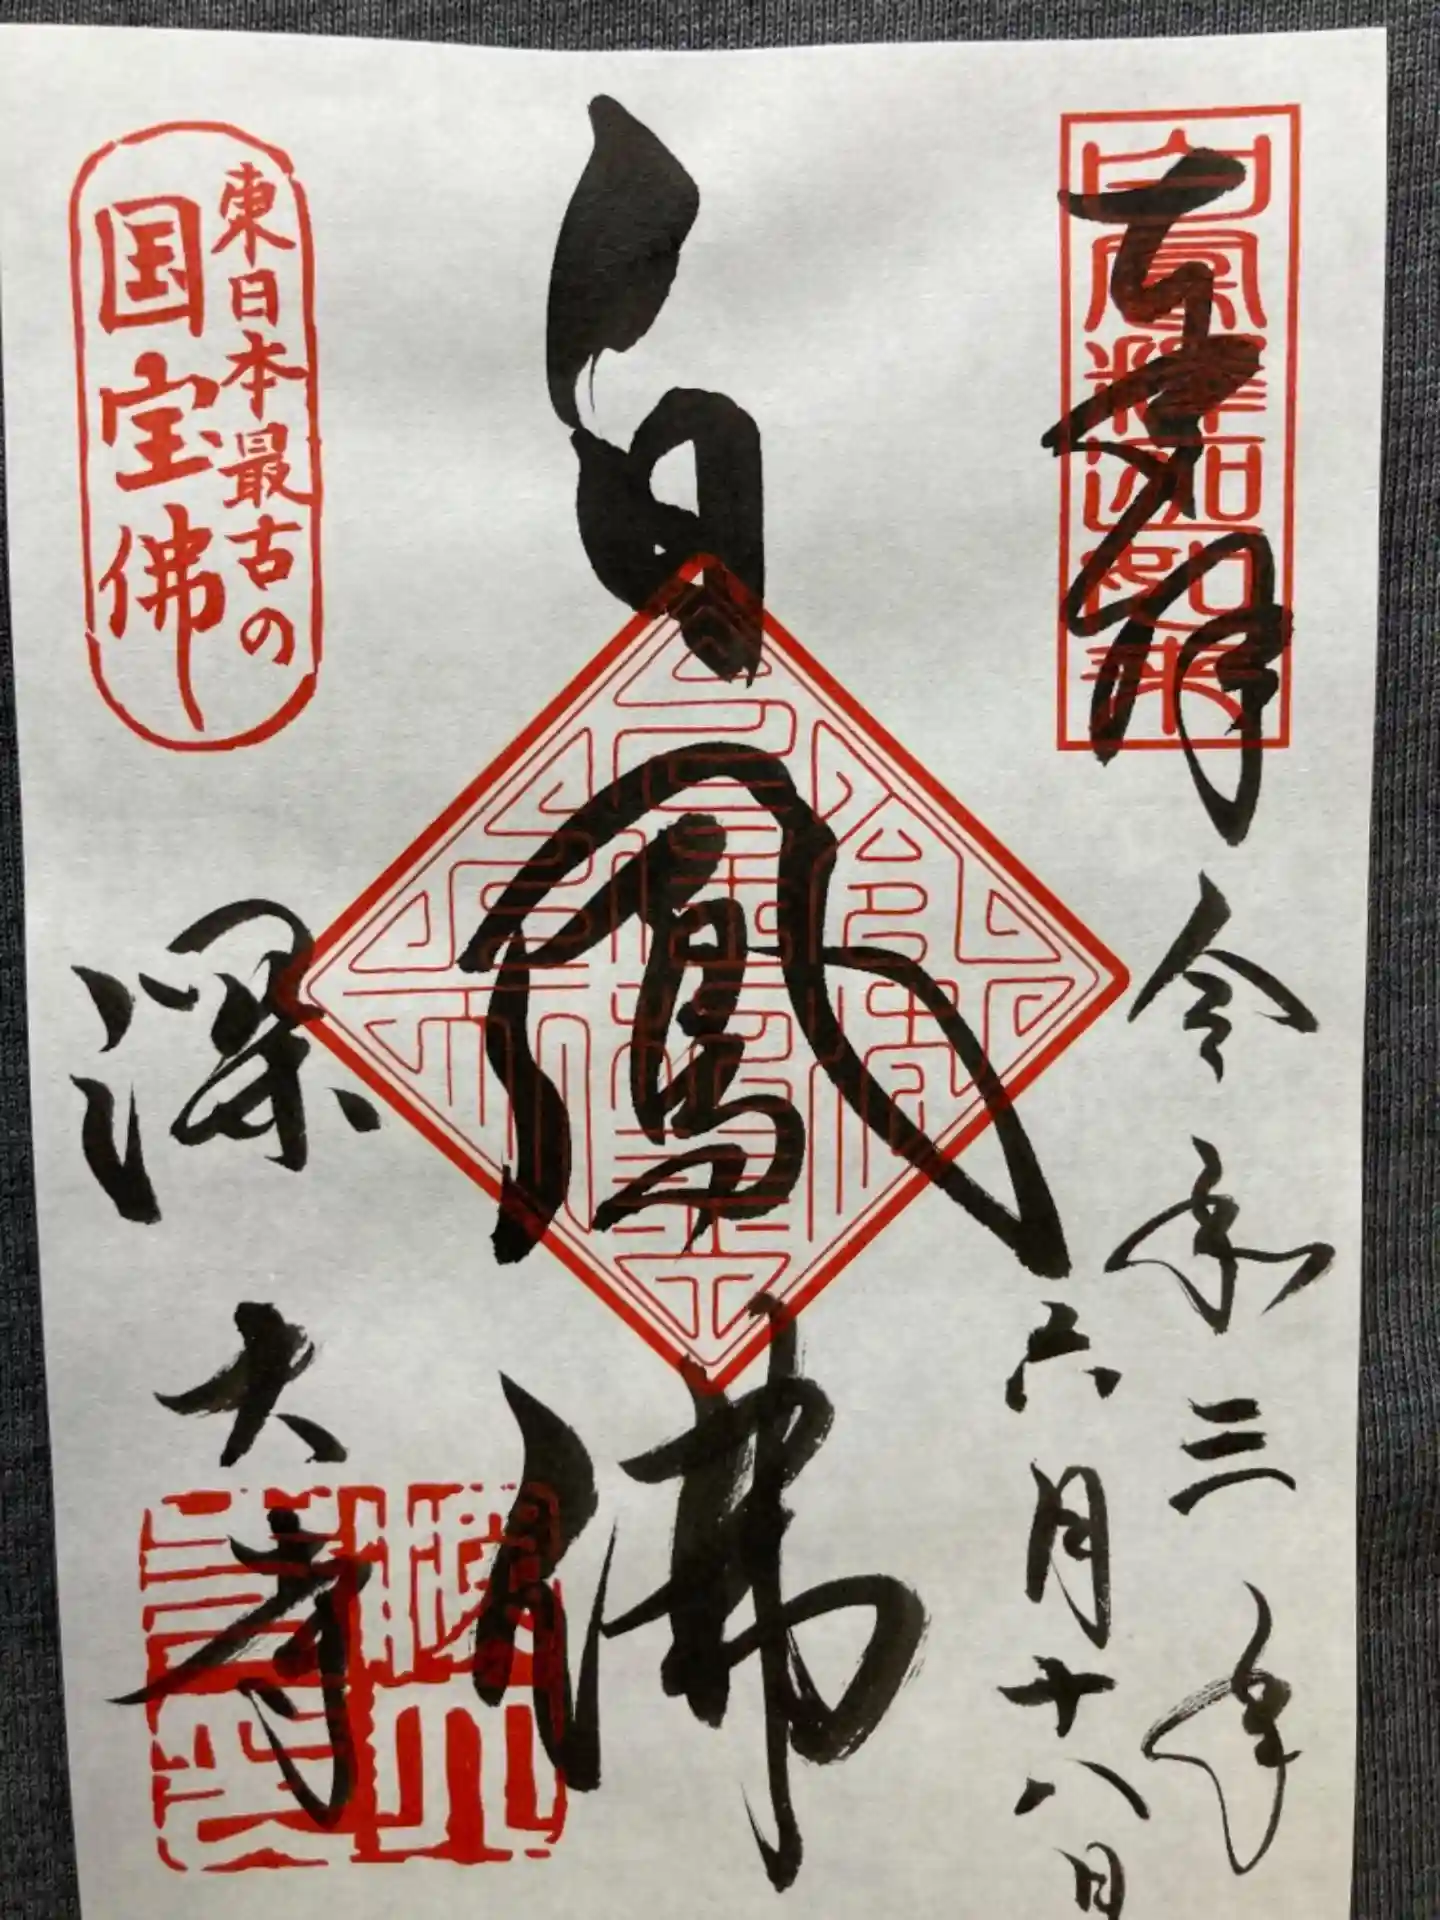 奉拝
白鳳釈迦如来
令和三年
六月十八日
白
鳳
佛
東日本最古の
国宝佛
深大寺